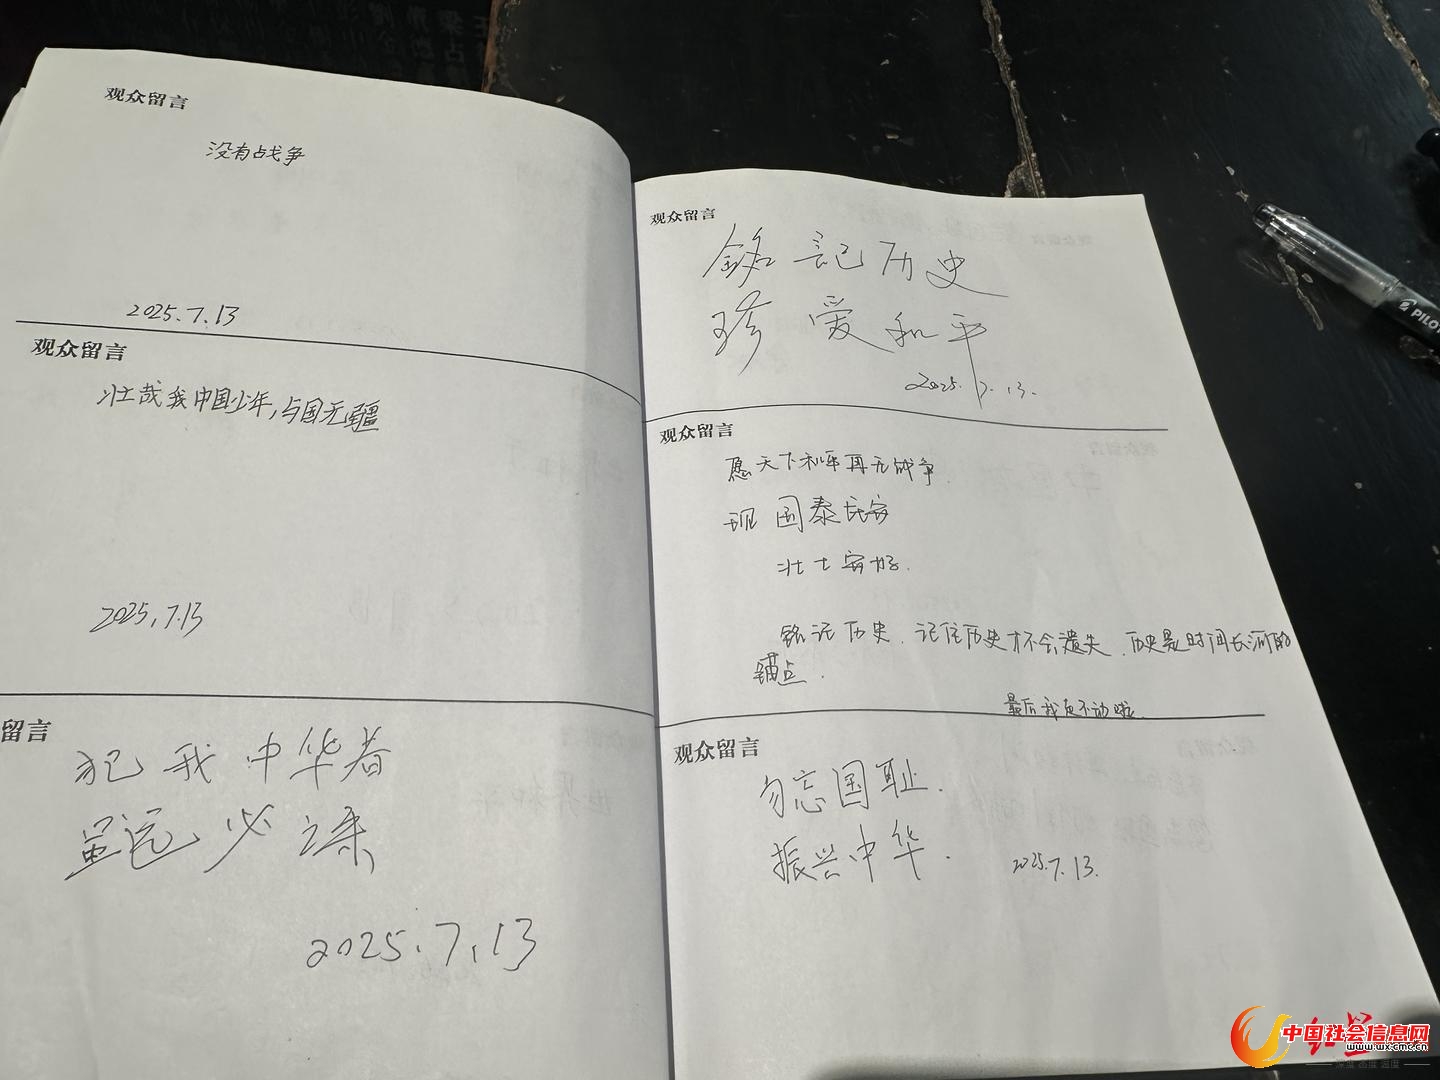 观众留言
没有战争
2025.7.13
观众留言
壮哉我中国少年,与国无疆
2025.7.13
留言
犯我中华者
虽远必诛
2025.7.13
观众留言
铭記历史
珍爱和平
2025.7.13.
观众留言
愿天下和平再无战争.
现国泰民安
壮士安好.
铭记历史.记住历史才不会遗失.历史是时间长河的
锚点.
最后我
观众留言
勿忘国耻.
振兴中华.
2025.7.13.
PILOT
中国社会信息网
www.wx.cmc.cn